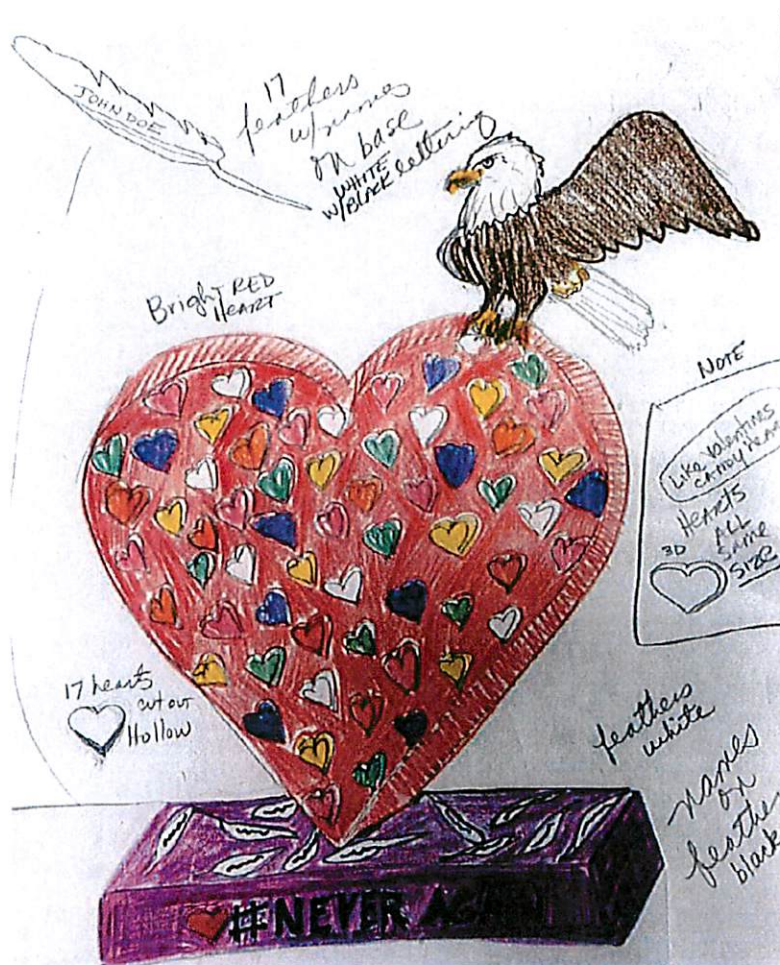 JOHN DOE
17
feathers
w/names
on base
WHITE
W/BLACK lettering
Bright RED
HEART
NOTE
Like valentines
candy hearts
HEARTS
ALL
Same
SIZE
3D
17 hearts
cut out
Hollow
feathers
white
names
on
feather
black
#NEVER AGAIN